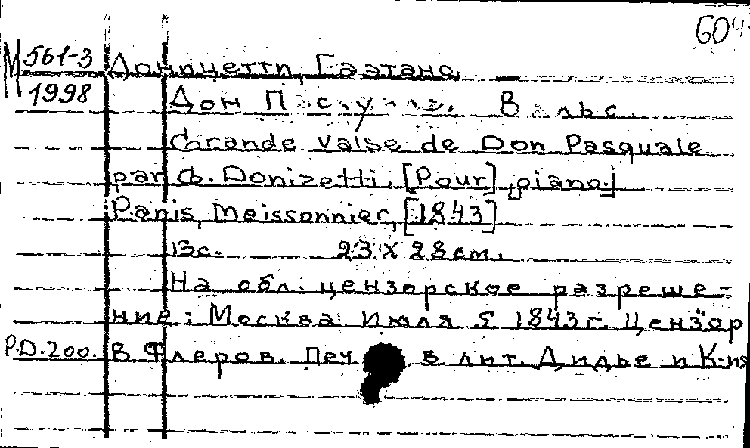 604
М 561-3 Доницетти, Гаэтано
1998 Дон Паскуале. Вальс.
Grande valse de Don Pasquale
par G. Donizetti. [Pour] piano.]
Paris, Meissonnier, [1843]
13с. 23 x 28 cm.
На обл. цензорское разреше-
ние: Москва июля 5 1843 г. Цензор
P.D.200. В. Флеров. Печ. в лит. Дидье и К-ия